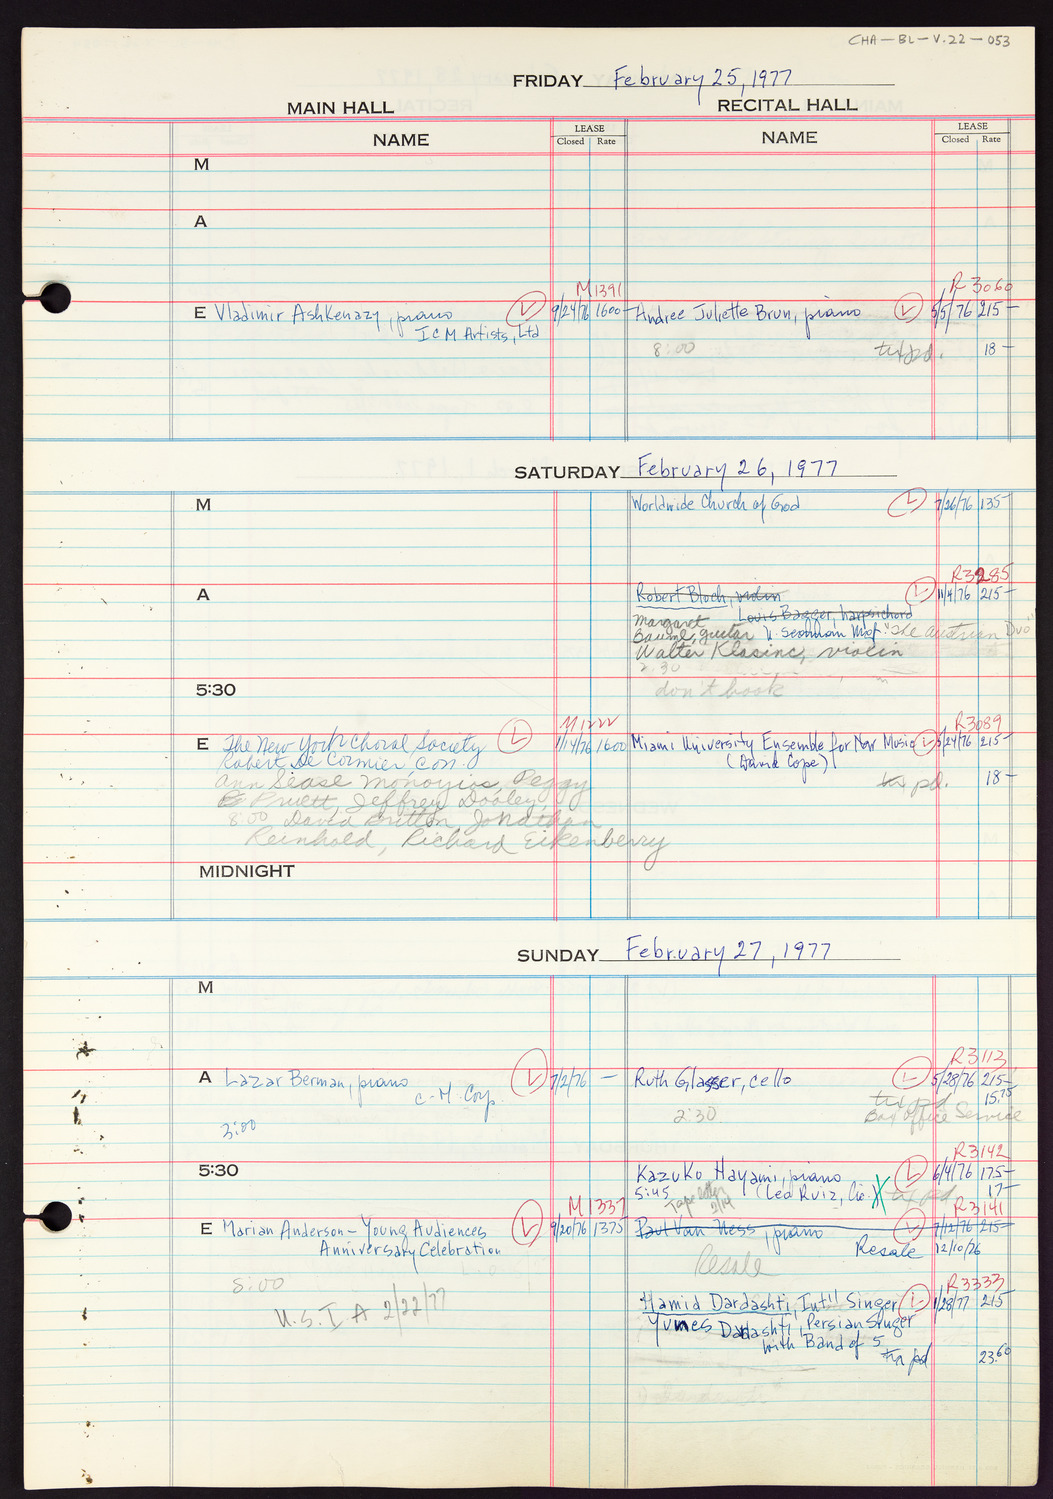 CHA-BL-V.22-053
FRIDAY February 25, 1977
MAIN HALL RECITAL HALL
NAME LEASE Closed Rate NAME LEASE Closed Rate
M
A
M1391 R3060
E Vladimir Ashkenazy, piano L 9/24/76 1600- Andree Juliette Brun, piano L 5/5/76 215-
ICM Artists, Ltd
8:00 tax pd. 18-
SATURDAY February 26, 1977
M Worldwide Church of God L 7/26/76 135-
R3285
A Robert Bloch, violin L 11/4/76 215-
Louis Bagger, harpsichord
Margaret
Bauml, guitar N. Seaman Mgt "The Austrian Duo"
Walter Klasinc, violin
2:30
5:30 don't book
M1222 R3089
E The New York Choral Society L 1/14/76 1600 Miami University Ensemble for New Music L 5/24/76 215-
Robert De Cormier, con. (David Cope)
Ann Sease Monoyios, Peggy tax pd. 18-
Pruett, Jeffrey Dooley,
8:00 David Britton, Jonathan
Reinhold, Richard Eikenberry
MIDNIGHT
SUNDAY February 27, 1977
M
R3113
A Lazar Berman, piano L 7/2/76 - Ruth Glasser, cello L 5/28/76 215-
C-M Corp. tax pd 15.75
3:00 2:30 Box Office Service
R3142
5:30 Kazuko Hayami, piano L 6/4/76 175-
5:45 (Leo Ruiz, Cie.) tax pd 17-
M1337 R3141
E Marian Anderson - Young Audiences L 9/20/76 1375 Paul Van Ness, piano L 7/12/76 215-
Anniversary Celebration Resale 12/10/76
8:00 Resale
U.S.I A 2/22/77 R3333
Hamid Dardashti, Int'l Singer L 1/28/77 215
Yunes Dardashti, Persian Singer
with Band of 5
tax pd 23.60